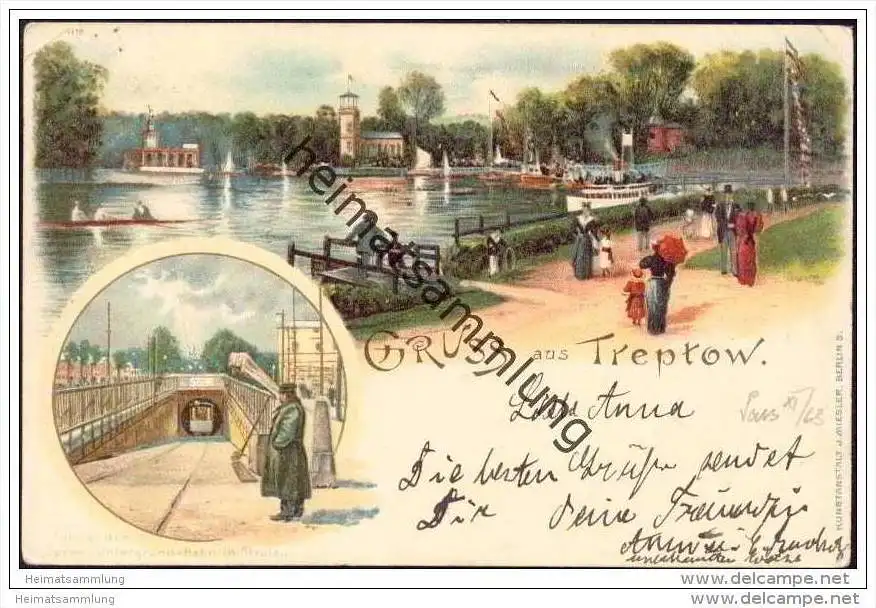 heimatsammlung
GRUSS aus Treptow.
Liebe Anna
Die besten Grüße sendet
Dir deine Freundin
KUNSTANSTALT J. MIESLER, BERLIN S.
Heimatsammlung delcampe.net
Heimatsammlung delcampe.net